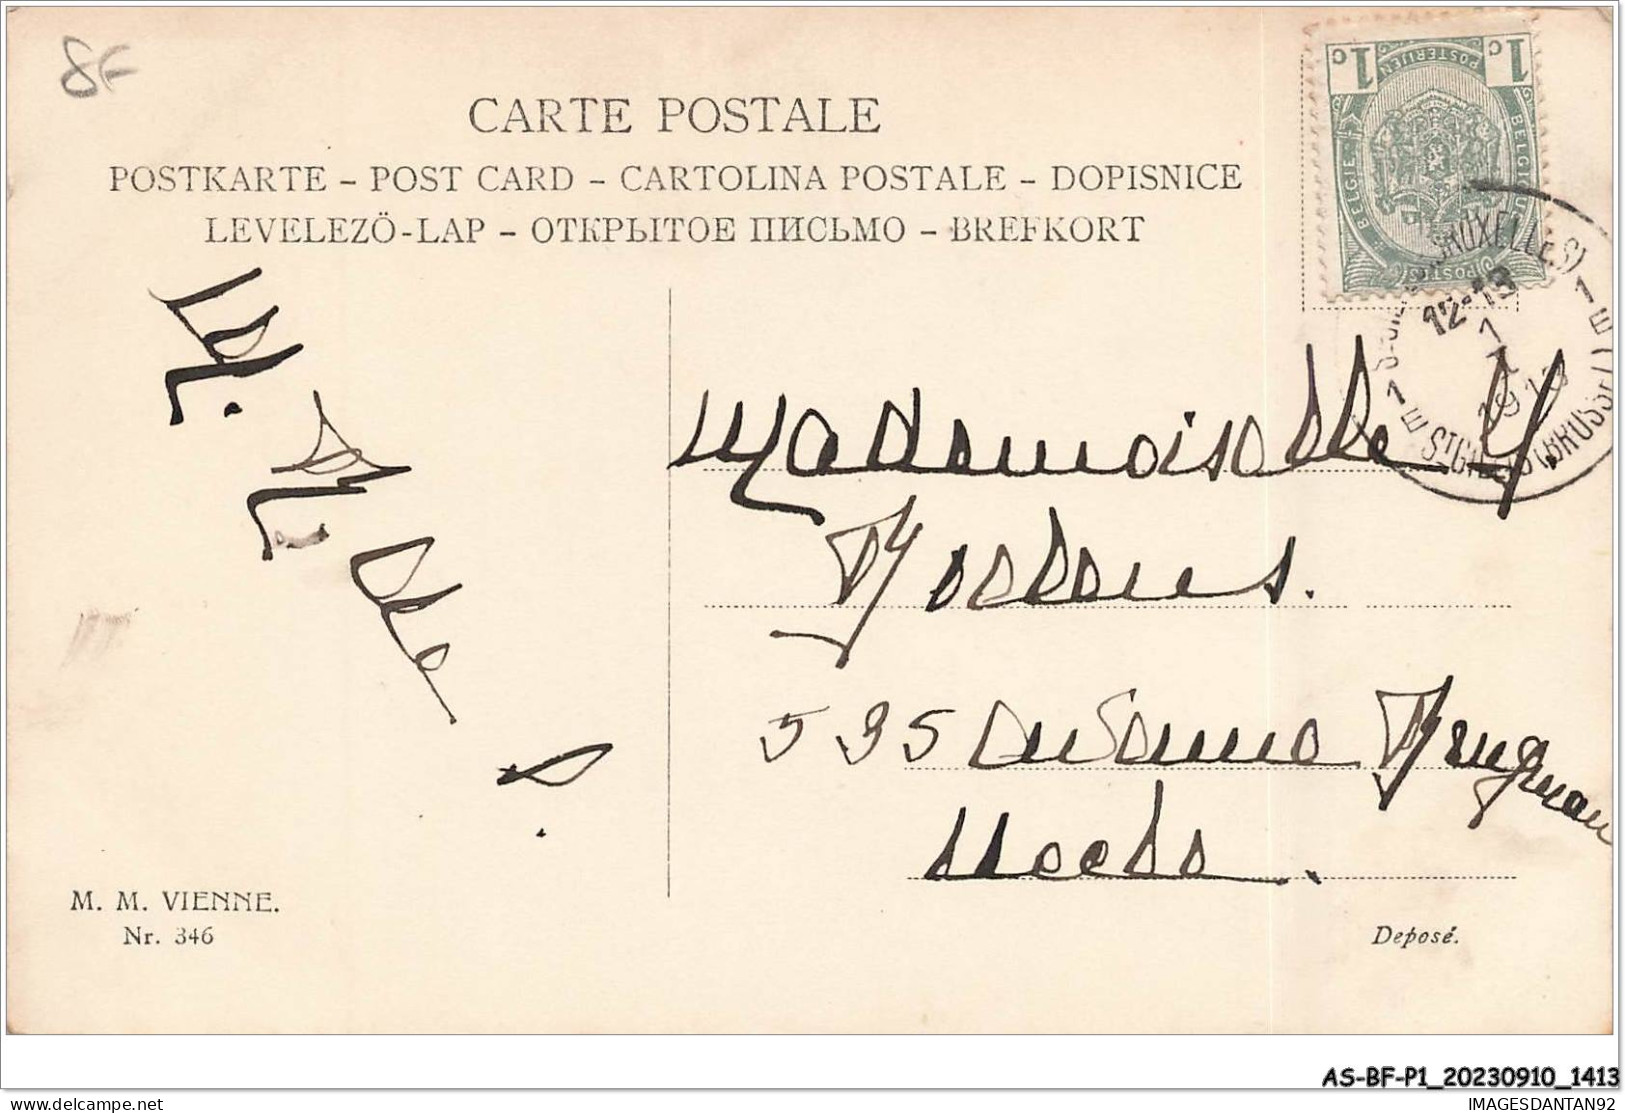 8F
CARTE POSTALE
POSTKARTE – POST CARD – CARTOLINA POSTALE – DOPISNICE
LEVELEZŐ-LAP – ОТКРЫТОЕ ПИСЬМО – BREFKORT
1c 1c
POSTERIJEN
BELGIE BELGIQUE
POSTES
BRUXELLES)
12-13
1
1 E
1 E
ST GILLIS (BRUSSEL)
Mademoiselle Y
535 Avenue Brugman
Uccle.
M. M. VIENNE.
Nr. 346
Deposé.
AS-BF-P1_20230910_1413
delcampe.net
IMAGESDANTAN92